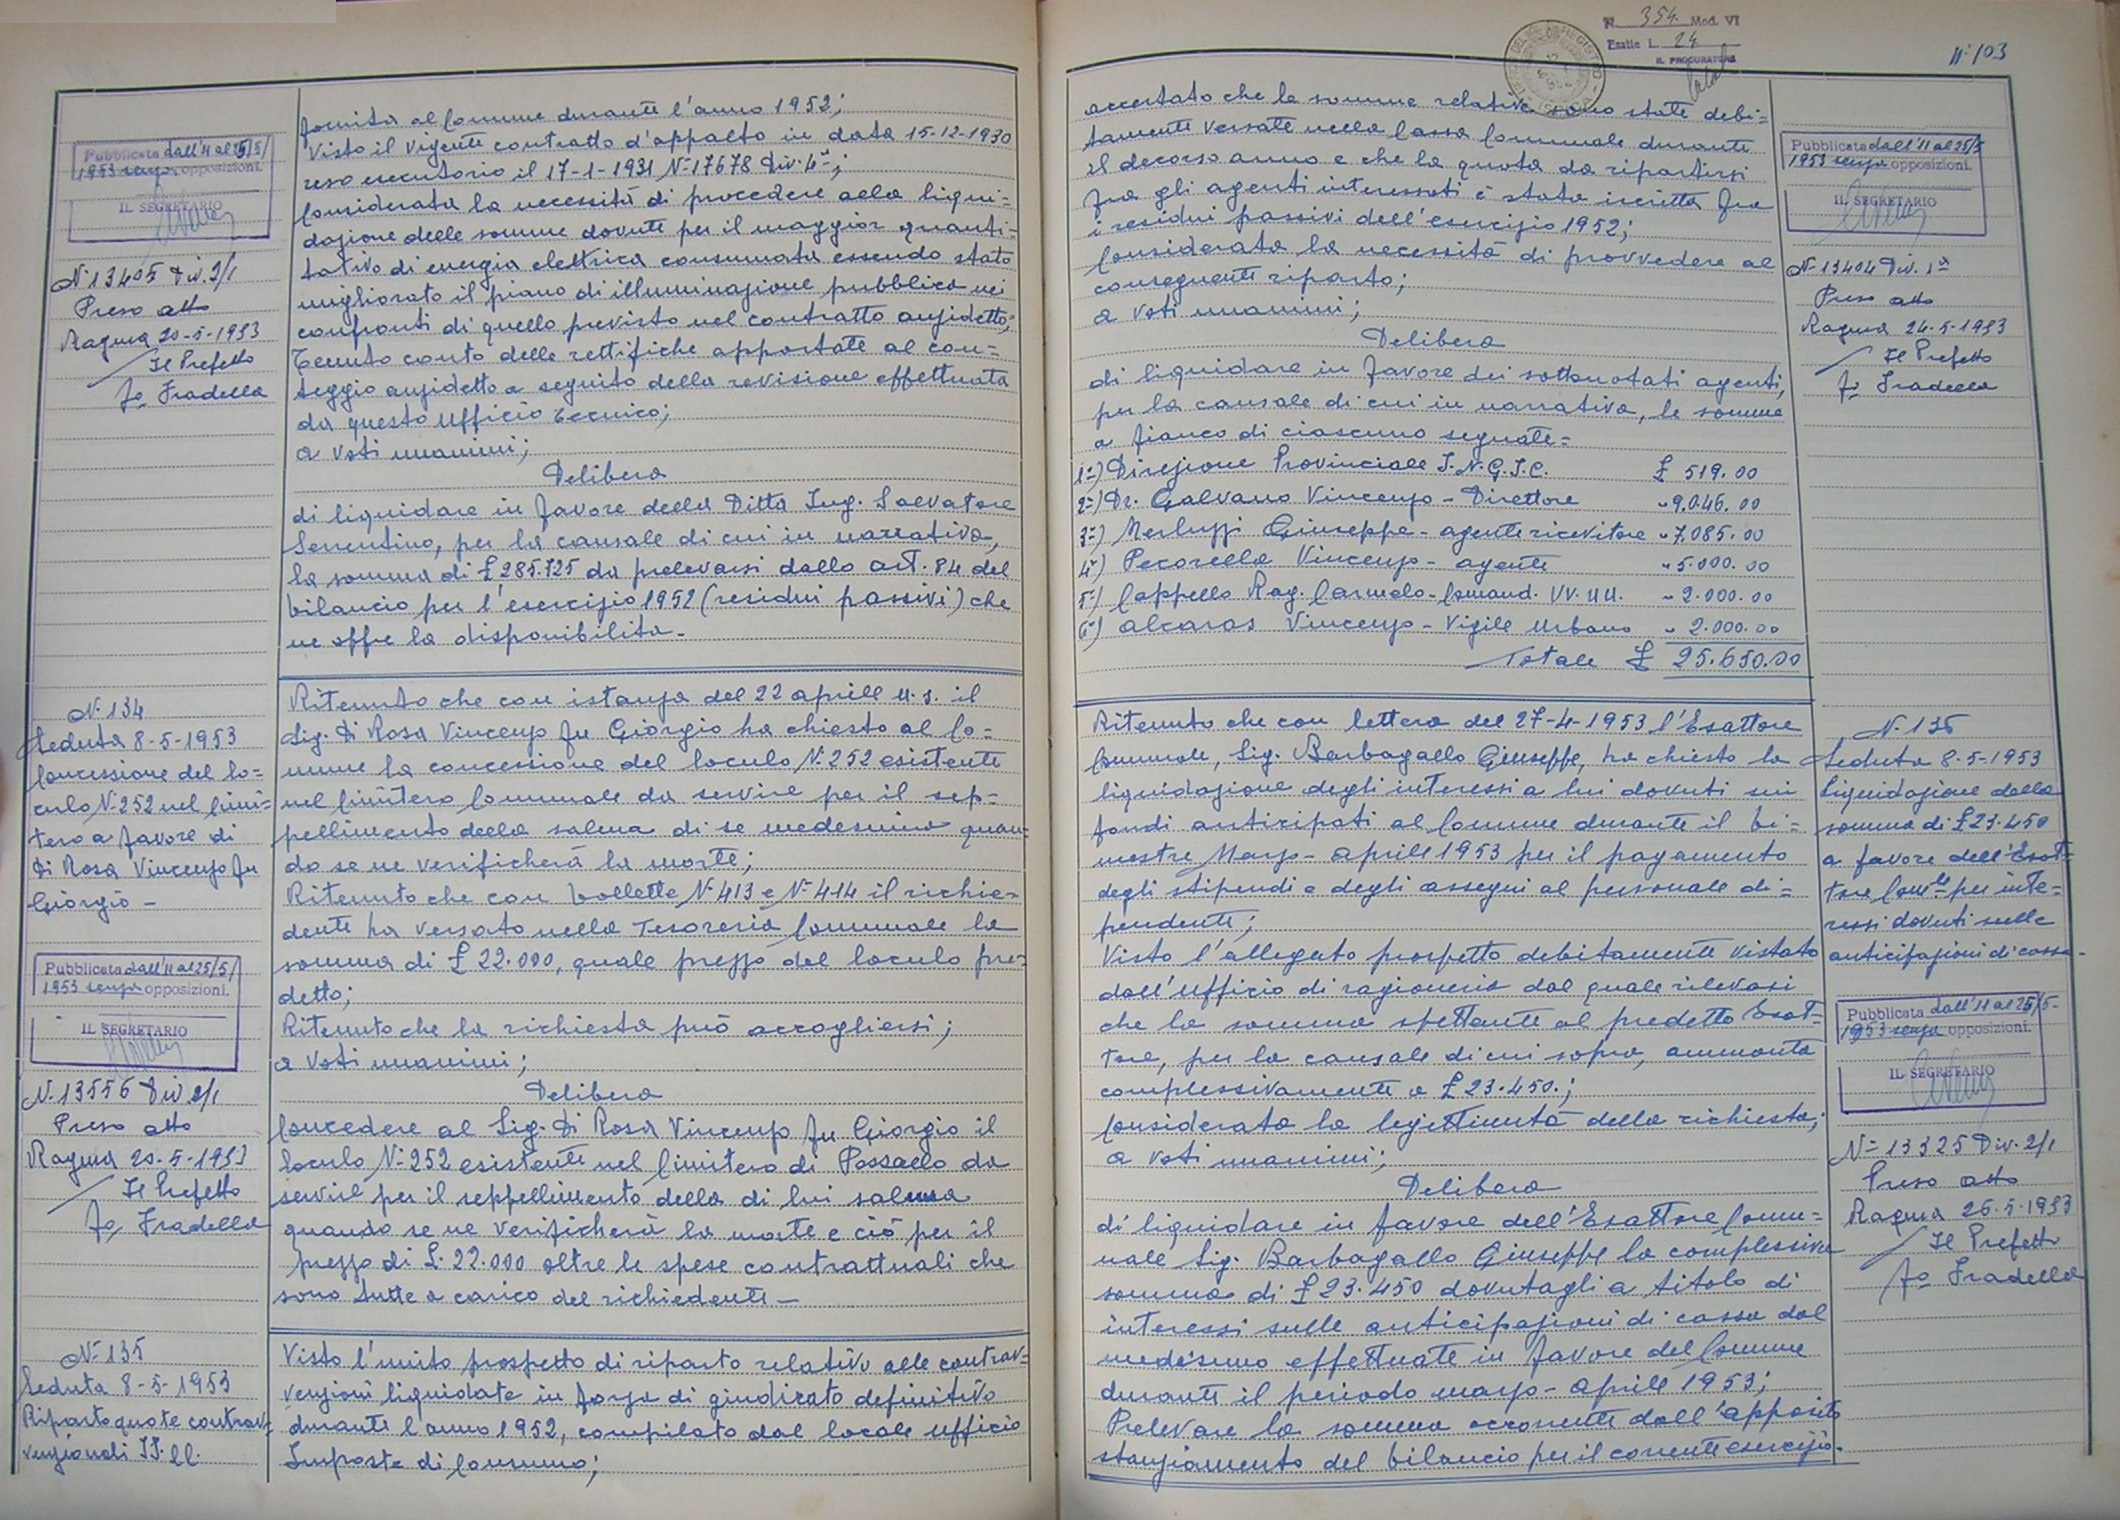 Pubblicata dall'11 al 25/5/
1953 senza opposizioni.
IL SEGRETARIO
N. 13405 Div. 2/1
Preso atto
Ragusa 20-5-1953
Il Prefetto
Fo Fradella
fornita al Comune durante l'anno 1952;
Visto il vigente contratto d'appalto in data 15-12-1930
reso esecutorio il 17-1-1931 N. 17678 Div. 4ª;
Considerata la necessità di procedere alla liqui=
dazione delle somme dovute per il maggior quanti=
tativo di energia elettrica consumata essendo stato
migliorato il piano di illuminazione pubblica nei
confronti di quello previsto nel contratto anzidetto;
Tenuto conto delle rettifiche apportate al con=
teggio anzidetto a seguito della revisione effettuata
da questo Ufficio Tecnico;
a voti unanimi;
Delibera
di liquidare in favore della Ditta Ing. Salvatore
Sorrentino, per la causale di cui in narrativa,
la somma di £ 285.725 da prelevarsi dallo art. 84 del
bilancio per l'esercizio 1952 (residui passivi) che
ne offre la disponibilità -
N. 134
Seduta 8-5-1953
Concessione del lo=
culo N. 252 nel Cimi=
tero a favore di
Di Rosa Vincenzo fu
Giorgio -
Pubblicata dall'11 al 25/5/
1953 senza opposizioni.
IL SEGRETARIO
N. 13556 Div. 2/1
Preso atto
Ragusa 20-5-1953
Il Prefetto
Fo Fradella
Ritenuto che con istanza del 22 aprile u.s. il
Sig. Di Rosa Vincenzo fu Giorgio ha chiesto al Co=
mune la concessione del loculo N. 252 esistente
nel Cimitero Comunale da servire per il sep=
pellimento della salma di se medesimo quan=
do se ne verificherà la morte;
Ritenuto che con bollette N. 413 e N. 414 il richie=
dente ha versato nella Tesoreria Comunale la
somma di £ 22.000, quale prezzo del loculo pre=
detto;
Ritenuto che la richiesta può accogliersi;
a voti unanimi;
Delibera
Concedere al Sig. Di Rosa Vincenzo fu Giorgio il
loculo N. 252 esistente nel Cimitero di Pozzallo da
servire per il seppellimento della di lui salma
quando se ne verificherà la morte e ciò per il
prezzo di £. 22.000 oltre le spese contrattuali che
sono tutte a carico del richiedente -
N. 135
Seduta 8-5-1953
Riparto quote contrav=
venzionali II.CC.
Visto l'unito prospetto di riparto relativo alle contrav=
venzioni liquidate in forza di giudicato definitivo
durante l'anno 1952, compilato dal locale Ufficio
Imposte di Consumo;
N. 354. Mod. VI
Esatte L. 24
IL PROCURATORE
N. 103
accertato che le somme relative sono state debi=
tamente versate nella Cassa Comunale durante
il decorso anno e che la quota da ripartirsi
fra gli agenti interessati è stata iscritta fra
i residui passivi dell'esercizio 1952;
Considerata la necessità di provvedere al
conseguente riparto;
a voti unanimi;
Delibera
di liquidare in favore dei sottonotati agenti,
per la causale di cui in narrativa, le somme
a fianco di ciascuno segnate=
1°) Direzione Provinciale I.N.G.I.C. £ 519.00
2°) Dr. Galvano Vincenzo - Direttore " 9.046.00
3°) Merluzzi Giuseppe - agente ricevitore " 7.085.00
4°) Pecorella Vincenzo - agente " 5.000.00
5°) Cappello Rag. Carmelo - Comand. VV.UU. " 2.000.00
6°) Alcaras Vincenzo - Vigile Urbano " 2.000.00
Totale £ 25.650.00
Pubblicata dall'11 al 25/5
1953 senza opposizioni.
IL SEGRETARIO
N. 13404 Div. 1ª
Preso atto
Ragusa 24-5-1953
Il Prefetto
Fo Fradella
Ritenuto che con lettera del 27-4-1953 l'Esattore
Comunale, Sig. Barbagallo Giuseppe, ha chiesto la
liquidazione degli interessi a lui dovuti sui
fondi anticipati al Comune durante il bi=
mestre Marzo - Aprile 1953 per il pagamento
degli stipendi e degli assegni al personale di=
pendente;
Visto l'allegato prospetto debitamente vistato
dall'Ufficio di ragioneria dal quale rilevasi
che la somma spettante al predetto Esat=
tore, per la causale di cui sopra, ammonta
complessivamente a £ 23.450.;
Considerata la legittimità della richiesta;
a voti unanimi;
Delibera
di liquidare in favore dell'Esattore Comu=
nale Sig. Barbagallo Giuseppe la complessiva
somma di £ 23.450 dovutagli a titolo di
interessi sulle anticipazioni di cassa dal
medesimo effettuate in favore del Comune
durante il periodo marzo - Aprile 1953;
Prelevare la somma occorrente dall'apposito
stanziamento del bilancio per il corrente esercizio.
N. 136
Seduta 8-5-1953
Liquidazione della
somma di £ 23.450
a favore dell'Esat=
tore Com.le per inte=
ressi dovuti sulle
anticipazioni di cassa -
Pubblicata dall'11 al 25/5-
1953 senza opposizioni.
IL SEGRETARIO
N. 13325 Div. 2/1
Preso atto
Ragusa 26-5-1953
Il Prefetto
Fo Fradella